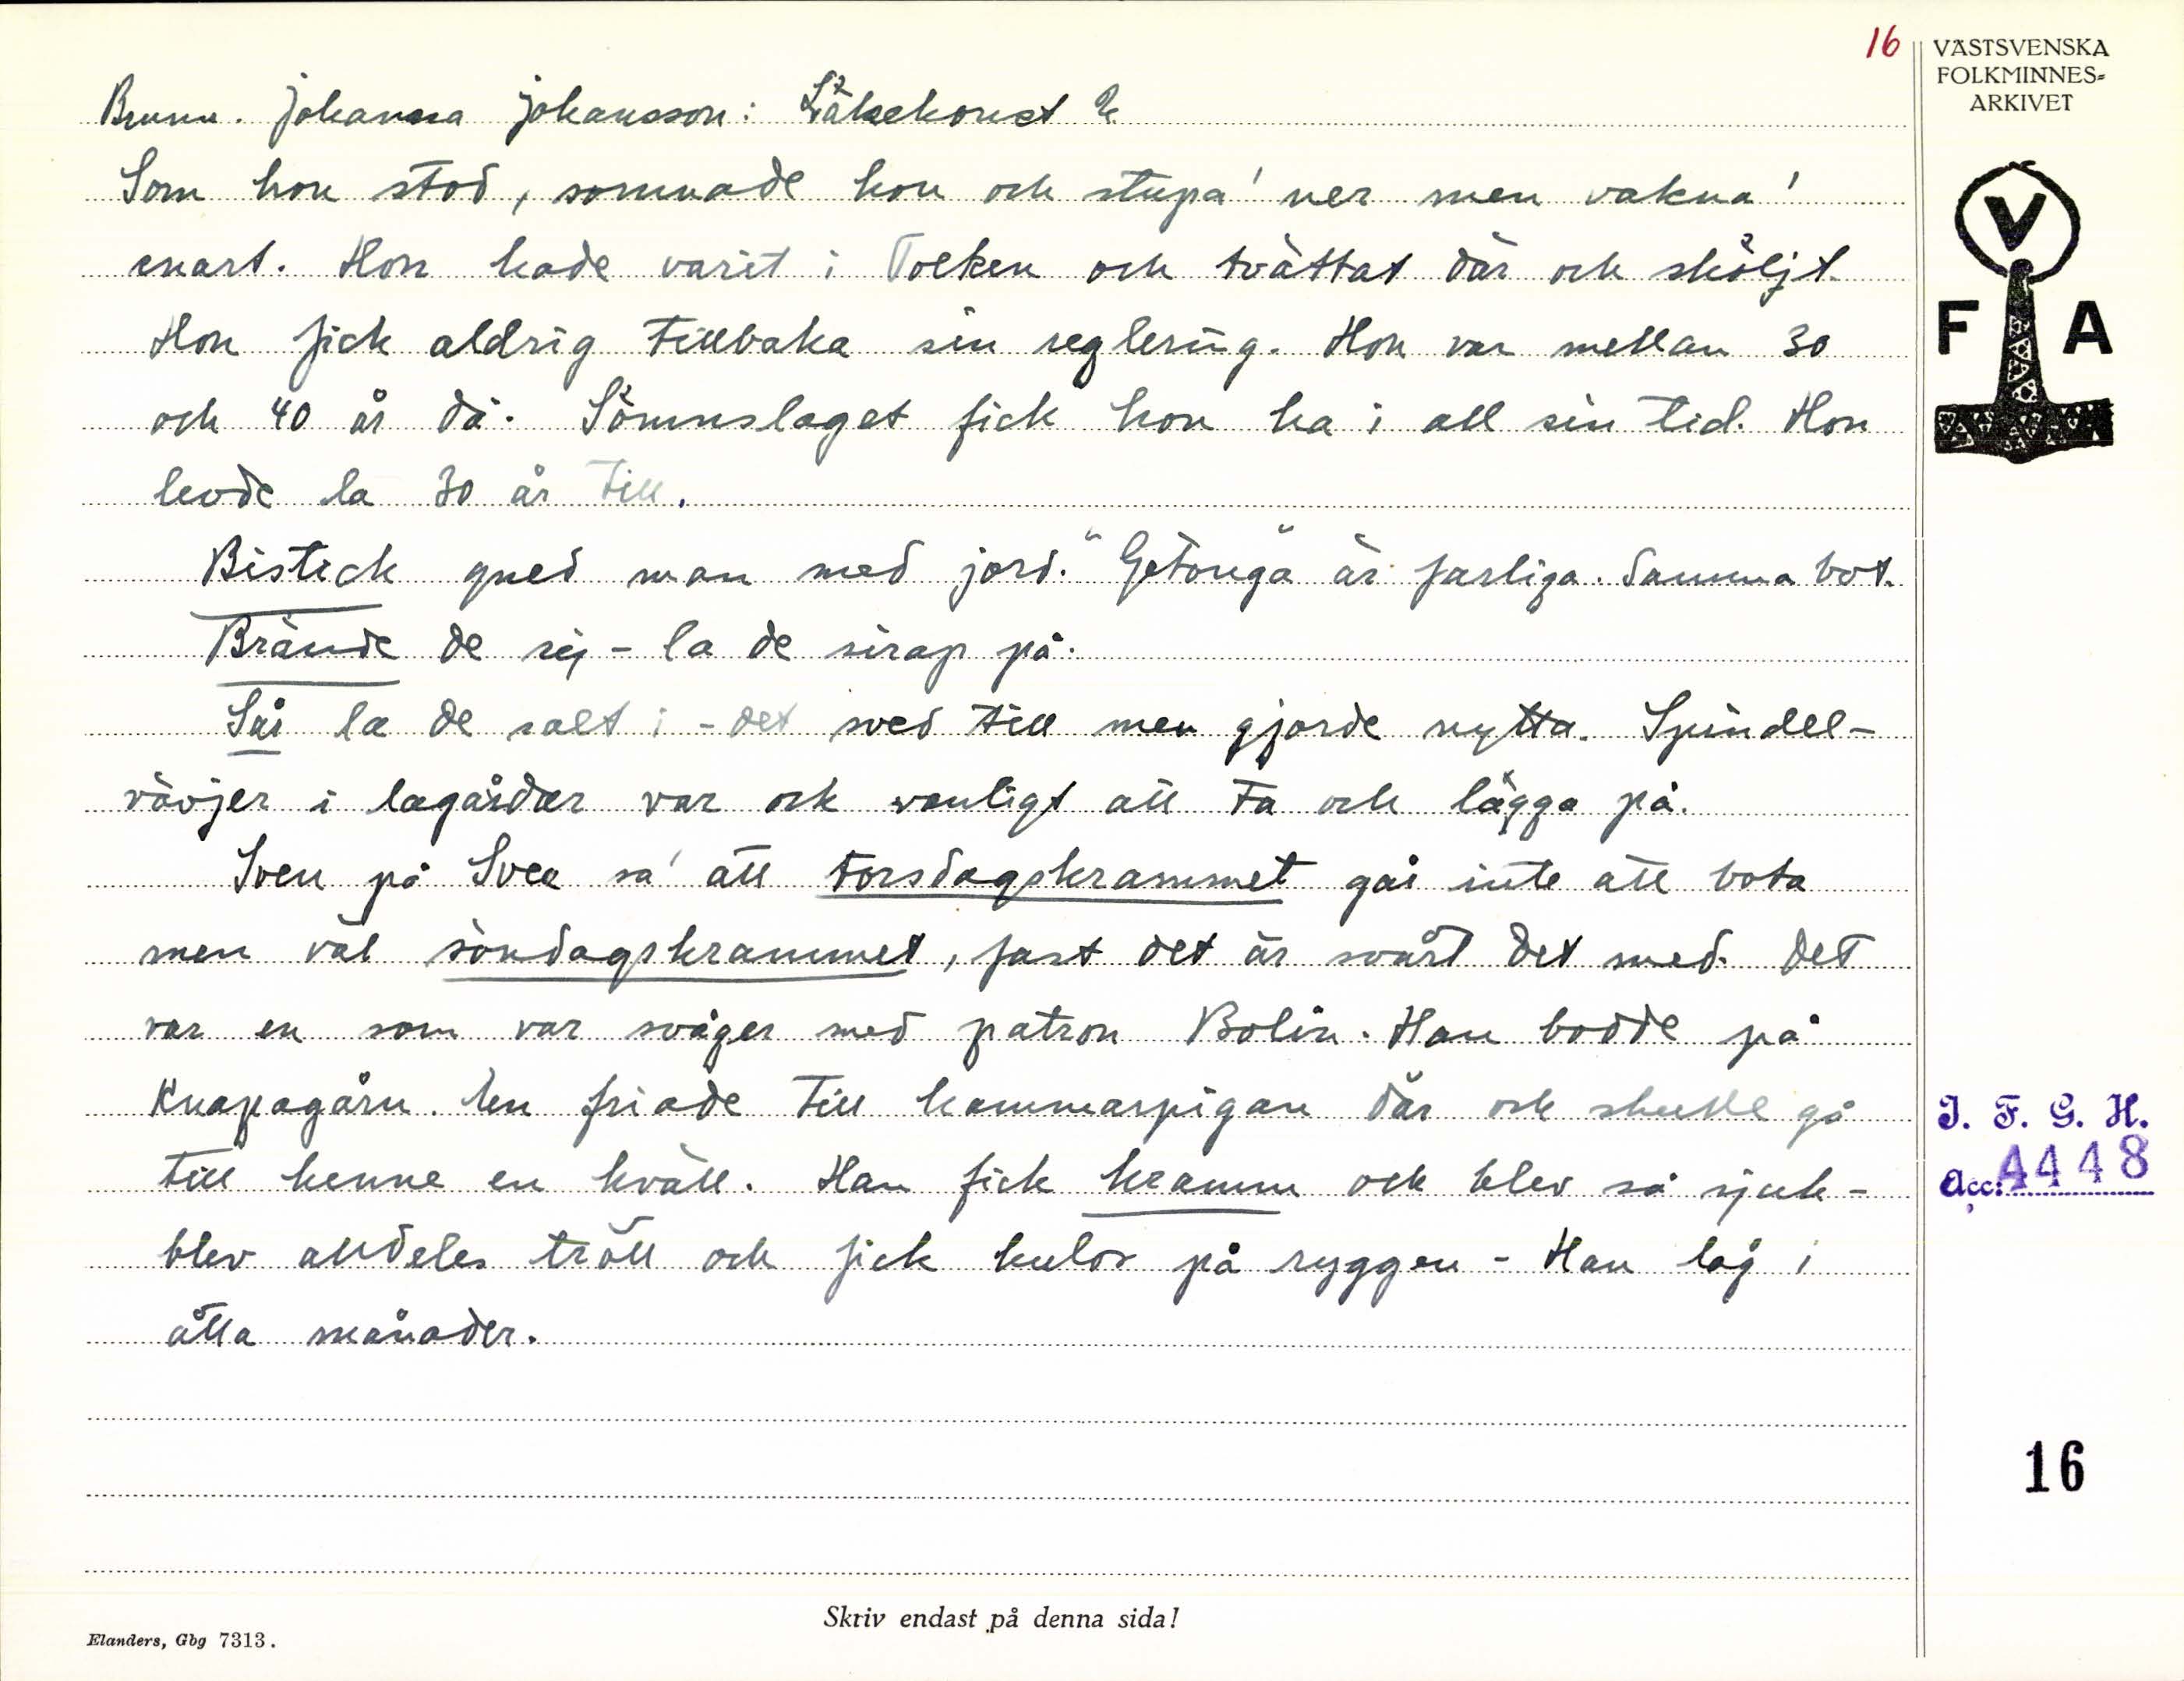 16
VÄSTSVENSKA
FOLKMINNES=
ARKIVET
Brunn. Johanna Johansson: Läkekonst
Som hon stod, somnade hon och stupa' ner men vakna'
snart. Hon hade varit i Tolken och tvättat där och sköljt.
Hon fick aldrig tillbaka sin reglering. Hon var mellan 30
och 40 år då. Sömnslaget fick hon ha i all sin tid. Hon
levde la 30 år till.
V
F A
Bistick gned man med jord. "Getönga" är farliga. Samma bot.
Brände de sig - la de sirap på.
Sår la de salt i - det sved till men gjorde nytta. Spindel-
vävjer i lagårdar var ock vanligt att ta och lägga på.
Sven på Svea sa' att torsdagskrammet går inte att bota
men väl söndagskrammet, fast det är svårt det med. Det
var en som var svåger med patron Bolin. Han bodde på
Knapagårn. Den friade till kammarpigan där och skulle gå
till henne en kväll. Han fick kramm och blev så sjuk-
blev alldeles tröll och fick kulor på ryggen - Han låg i
åtta månader.
I. F. G. H.
Acc: 4448
16
Skriv endast på denna sida!
Elanders, Gbg 7313.